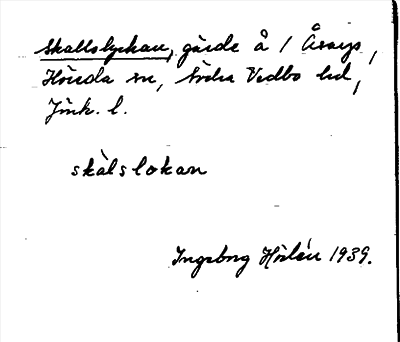 Skallslyckan, gärde å 1 Åsarp,
Hönda sn, Södra Vedbo hd,
Jönk. l.
skàlslokan
Ingeborg Hörlén 1939.